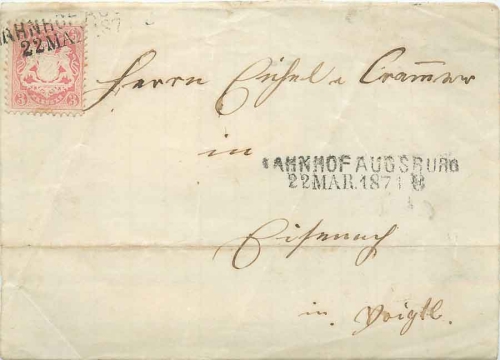 BAHNHOF AUG
22 MAR 187
3 3
Herrn Eichel & Crammer
in
BAHNHOF AUGSBURG
22 MAR. 1871 B
Eisenach
in Voigtl.